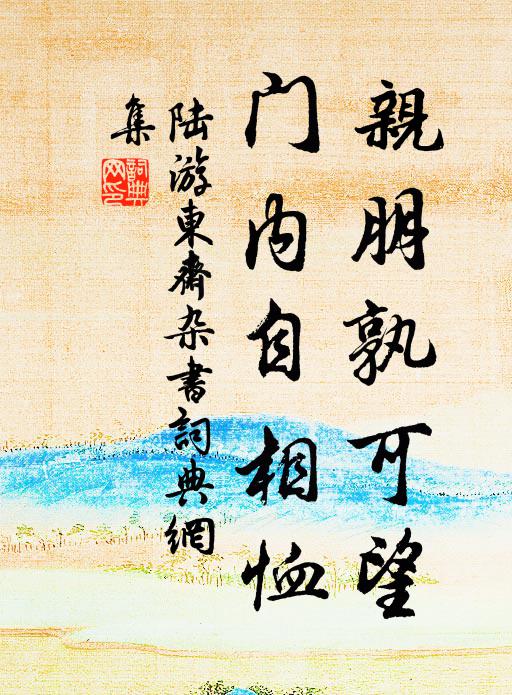 親朋孰可望
门内自相恤
陆游東齋杂書詞典網
集
詞典网印